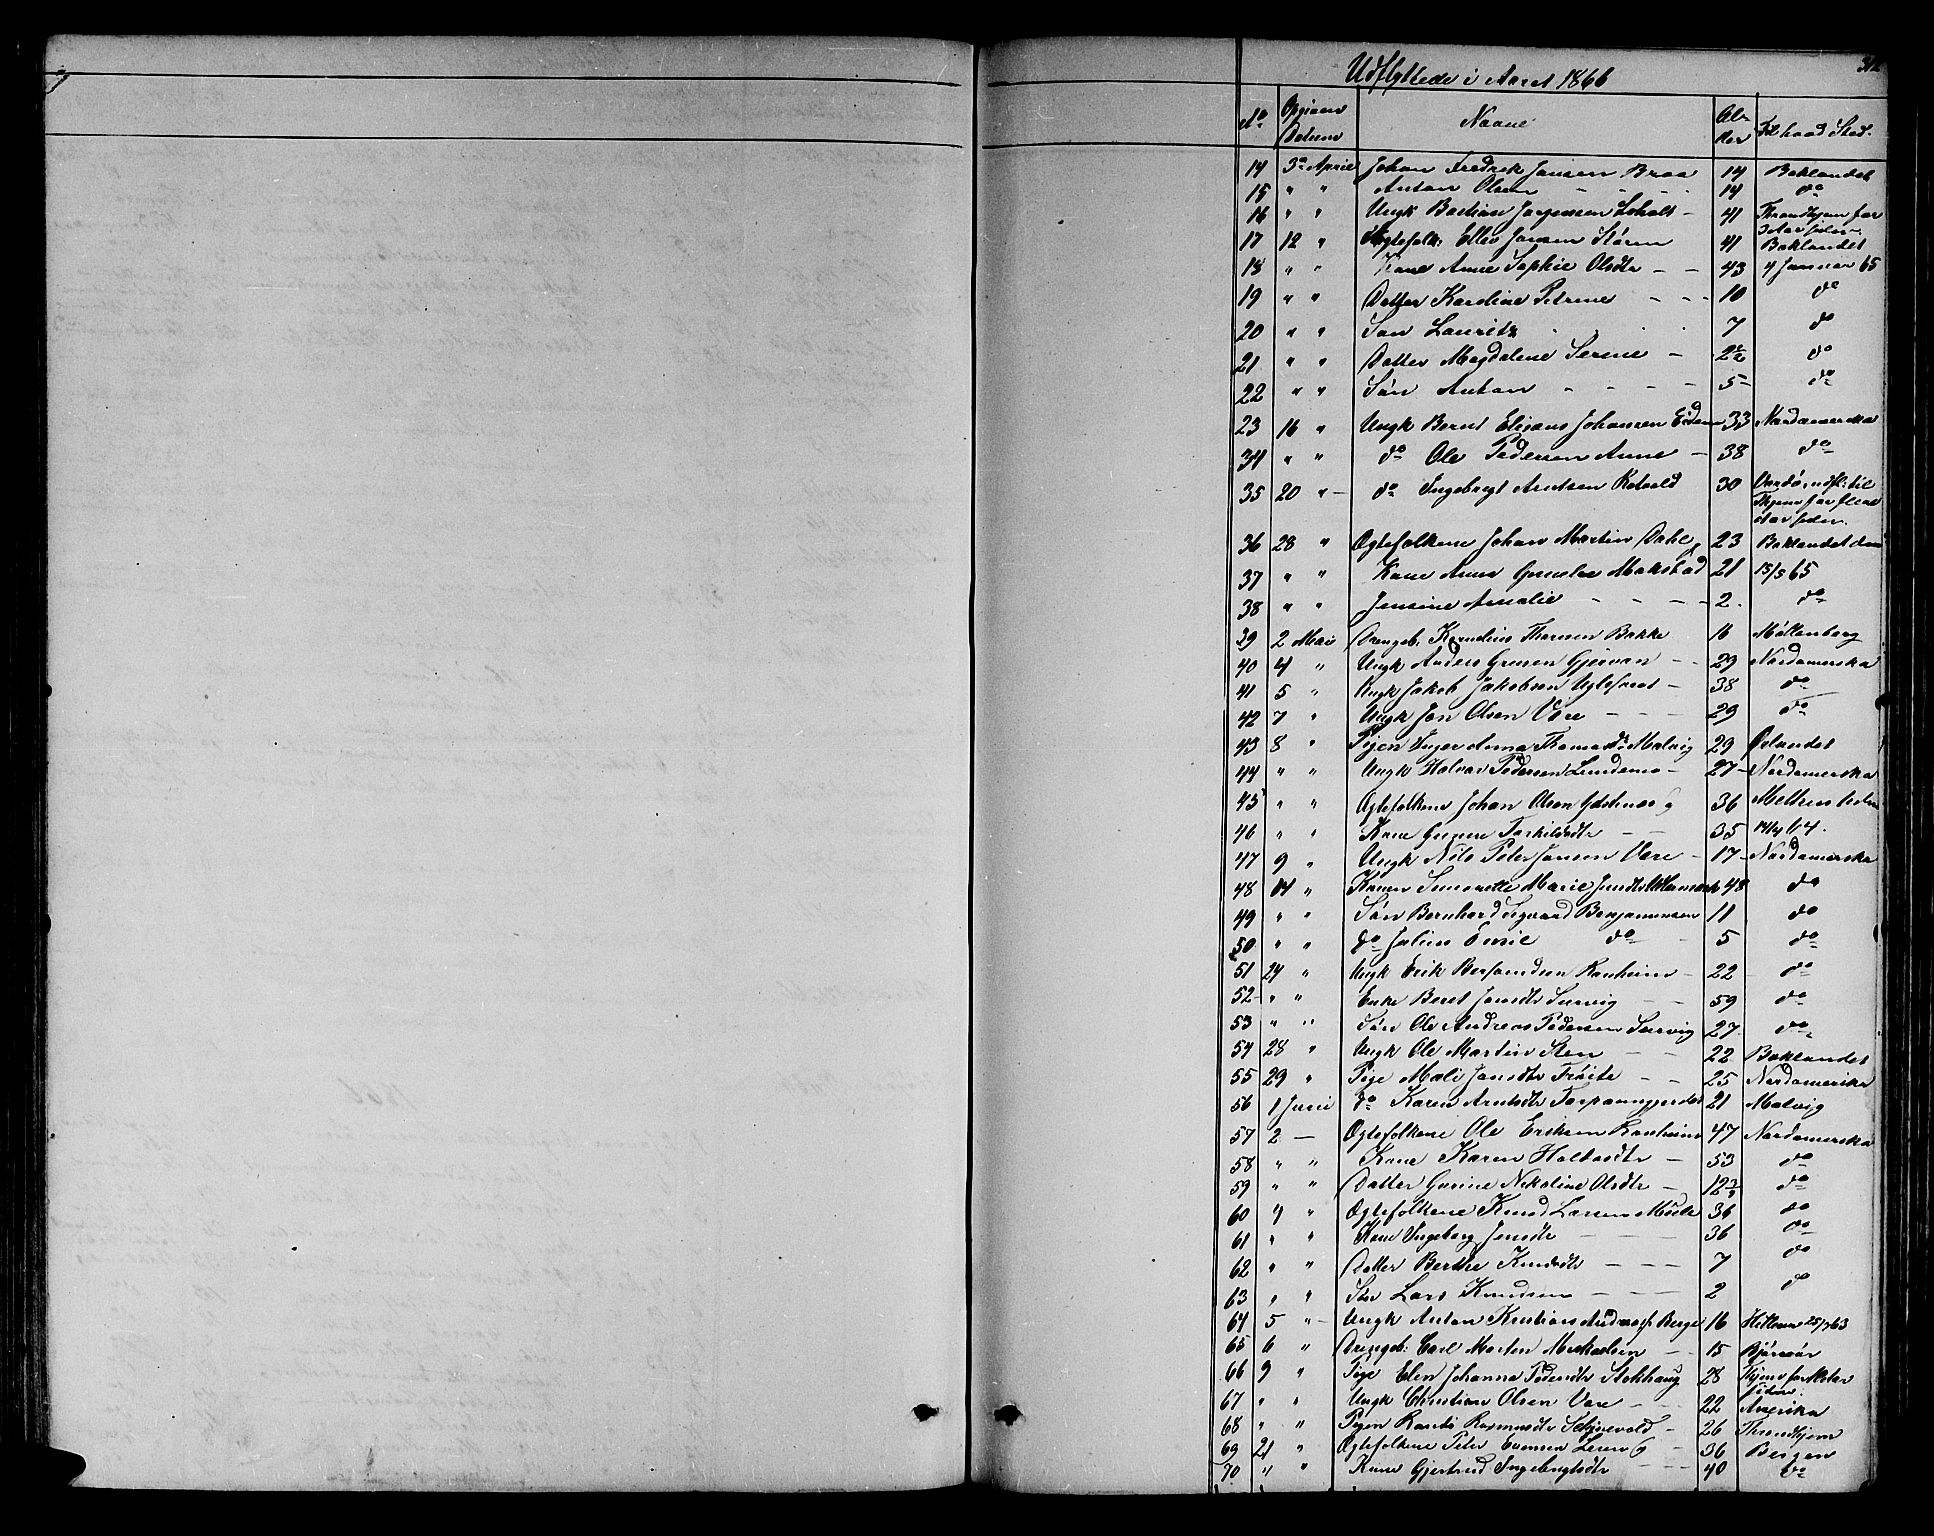 Udflyttede i Aaret 1866
No Opgivens Datum Navne Alder Til hvad Sted.
14 3die April Johan Fredrik Jansen Braa 14 Baklandet
15 " " Anton Olsen - - - 14 do
16 " " Ungk Bastian Jørgensen - 41 Throndhjem for
3 Aar siden
17 12 " Ægtefolk: Ellev Jansen Støren 41 Baklandet
18 " " Kone Anne Sophie Olsdtr - - 43 4 Januar 65
19 " " Datter Karoline Petrine - - - 10 do
20 " " Søn Lauritz 7 do
21 " " Datter Magdalene Serine - 2½ do
22 " " Søn Anton - - - - 5 do
23 16 " Ungk Bernt Elisæus Johansen 33 Nordamerika
34 " " do Ole Pedersen Aune - 38 do
35 20 " - do Ingebrigt Arntsen 30 Vardø, udfl: til
Thjem for flere
Aar siden.
36 28 " Ægtefolkene Johan Martin Dahl 23 Baklandet den
37 " " Kone Anne Gurine Makstad 21 15/5 65
38 " " Jensine Amalie - - - - 2 do
39 2 Mai Drengeb. Kornelius Thomsen Bakke 16 Møllenberg
40 4 " Ungk Anders Gjervan - - 29 Nordamerika
41 5 " Ungk Jakob Jakobsen - 38 do
42 7 " Ungk Jon Olsen Være - - - 29 do
43 8 " Pigen Inger Anna Thomasdtr Malvig 29 Ørlandet
44 " " Ungk Halvar Pedersen Lundemo - 27 - Nordamerika
45 " " Ægtefolkene Johan Olsen 36
46 " " Kone Gurine Torkildsdtr - - 35 64.
47 9 " Ungk Nils Peter Jansen Være - 17 - Nordamerika
48 14 " Konen Simonette Marie 48 do
49 " " Søn Bernhard Sigvard Benjaminsen 11 do
50 " " do Julius Emil do - 5 do
51 24 " Ungk Erik Ranheim - 22 do
52 " " Enke Beret Jonsdtr - - 59 do
53 " " Søn Ole Andreas Pedersen 27 do
54 28 " Ungk Ole Martin Sten - - 22 Baklandet
55 29 " Pige Mali Jonsdtr Frøite - - 25 Nordamerika
56 1 Juni do Karen Arntsdtr 21 Malvig
57 2 - Ægtefolkene Ole Eriksen Ranheim 47 Nordamerika
58 " " Kone Karen - 53 do
59 " " Datter Gurine Nikoline Olsdtr - 12 do
60 4 " Ægtefolkene Knud Larsen 36 do
61 " " Kone Ingeborg Jensdtr - - - 36 do
62 " " Datter Berthe Knudsdtr - - - 7 do
63 " " Søn Lars Knudsen - - - 2 do
64 5 " - Ungk Anton Kristian Berge 16 Hitteren 25/7 63
65 6 " Drengeb: Carl Morten Mikalsen - - 15 Bjørnør
66 9 " Pige Elen Johanna Pedersdtr Stokhaug 28 Thjem for
siden.
67 " " Ungk Christian Olsen Være - - - 22 Amerika
68 " " Pigen Randi Rasmusdtr - 26 Throndhjem
69 21 " Ægtefolkene Peter Evensen 36 Bergen
70 " " Kone Gjertrud Ingebrigtsdtr - - - 40 do